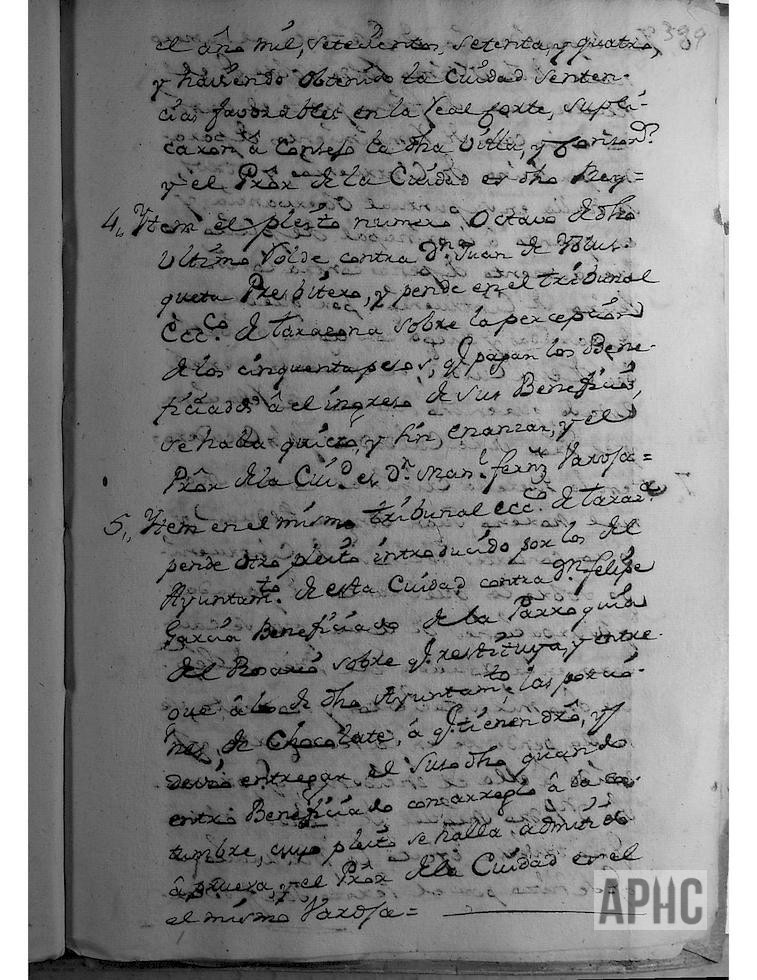 399
el año mil, setecientos, setenta, y quatro,
y haviendo obtenido la Ciudad senten-
cias favorables en la Real Corte, supli-
caron à Consejo la dha Villa, y
y el Prõr de la Ciudad es dho Rey=
4,, Ytem el pleito numero Octavo de dho
ultimo Volde contra Dn. Juan de
queta Presbitero, y pende en el tribunal
Ecc.co de Tarazona sobre la percepcion
de los cinquenta pesos, q.e pagan los Bene-
ficiados â el ingreso de sus Beneficios,
se halla quieto, y sin enanzar, y el
Prõr de la Ciud.d es Dn. Man.l Fern.z Varosa=
5,, Ytem en el mismo tribunal ecc.co de Taraz.a
pende otro pleito introducido por los del
Ayuntam.to de esta Ciudad contra Dn. Felipe
Garcia Beneficiado de la Parroquia
del Rosario sobre q.e restituya, y entre-
gue â los de dho Ayuntam.to las porcio-
nes, de Chocolate, á q.e tienen dro, y
devio entregar el susodho quando
entro Beneficiado con arreglo â la cos-
tumbre, cuyo pleito se halla admitido
â prueva, y el Prõr de la Ciudad en el
el mismo Varosa=
APHC